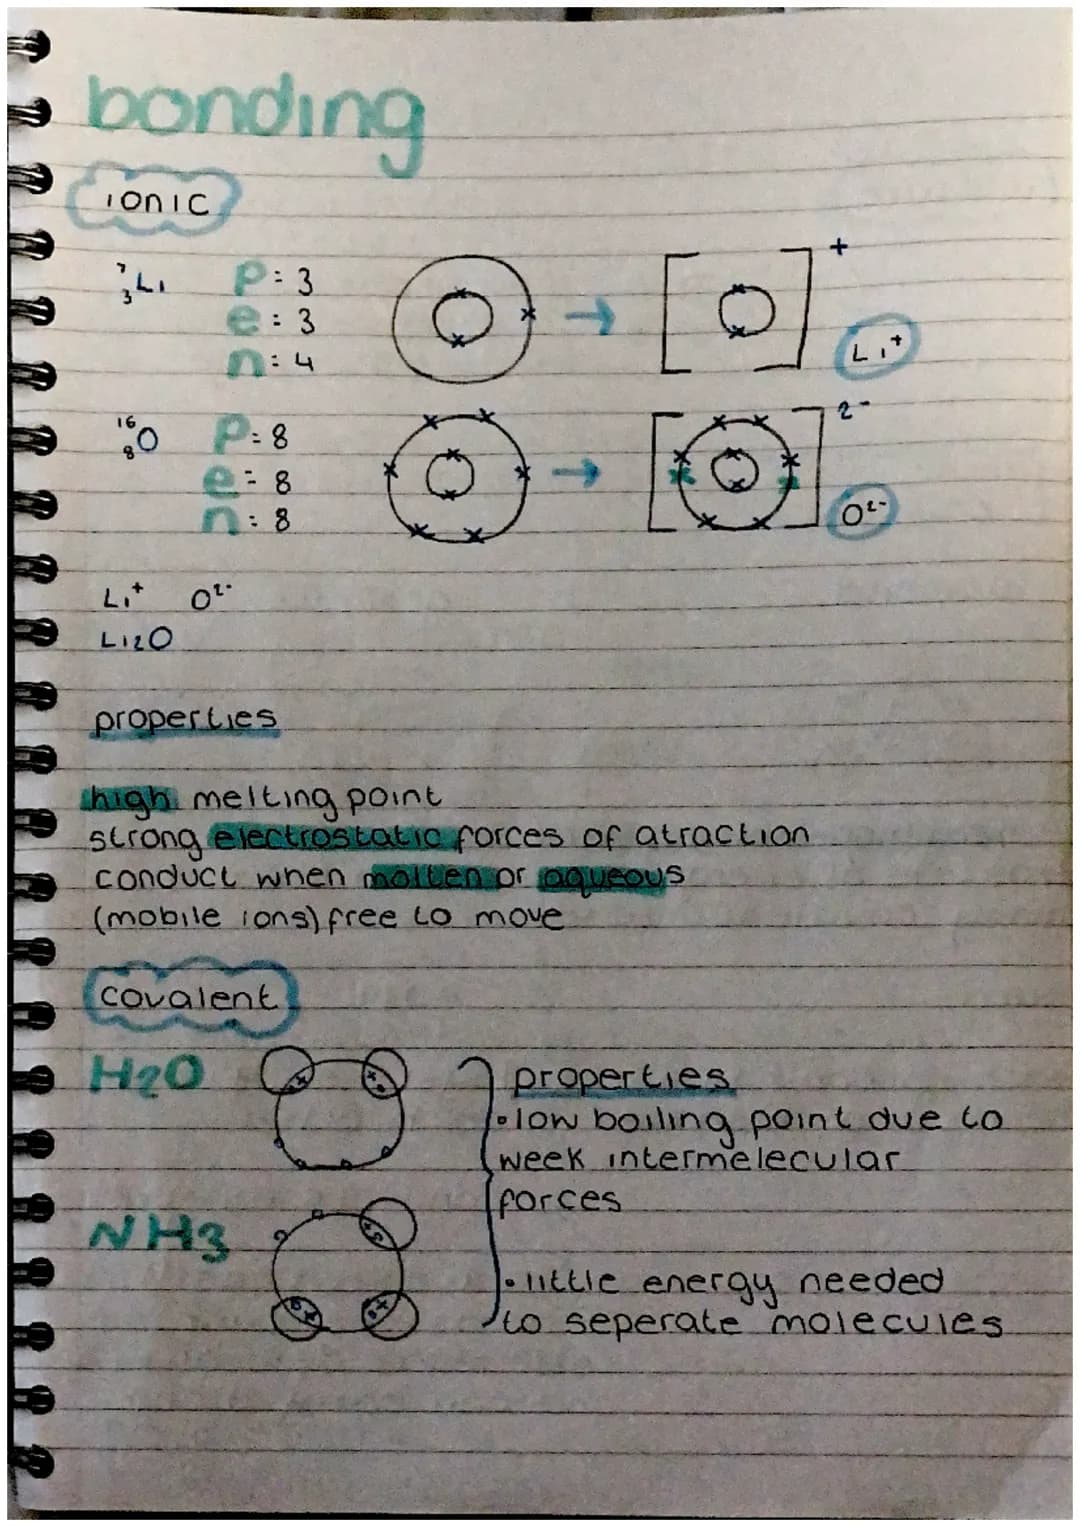 bonding
ionic
⁷₃Li p: 3
e: 3
n: 4
+
Li⁺
¹⁶₈O p: 8
e: 8
n: 8
2-
O²⁻
Li⁺ O²⁻
Li₂O
properties
high melting point
strong electrostatic forces of atraction
conduct when molten or aqueous
(mobile ions) free to move
covalent
H₂O
NH₃
properties
• low boiling point due to
week intermelecular
forces
• little energy needed
to seperate molecules